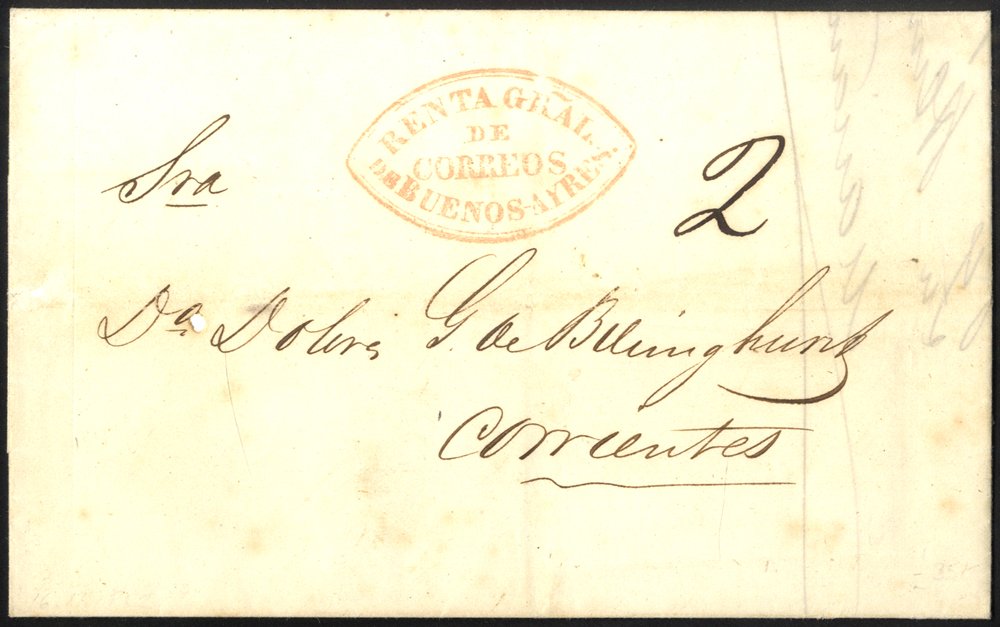 RENTA GRĀL.
DE
CORREOS
DE BUENOS-AYRES.
2
Sra
Da. Dolores G. de Billinghurst
Corrientes